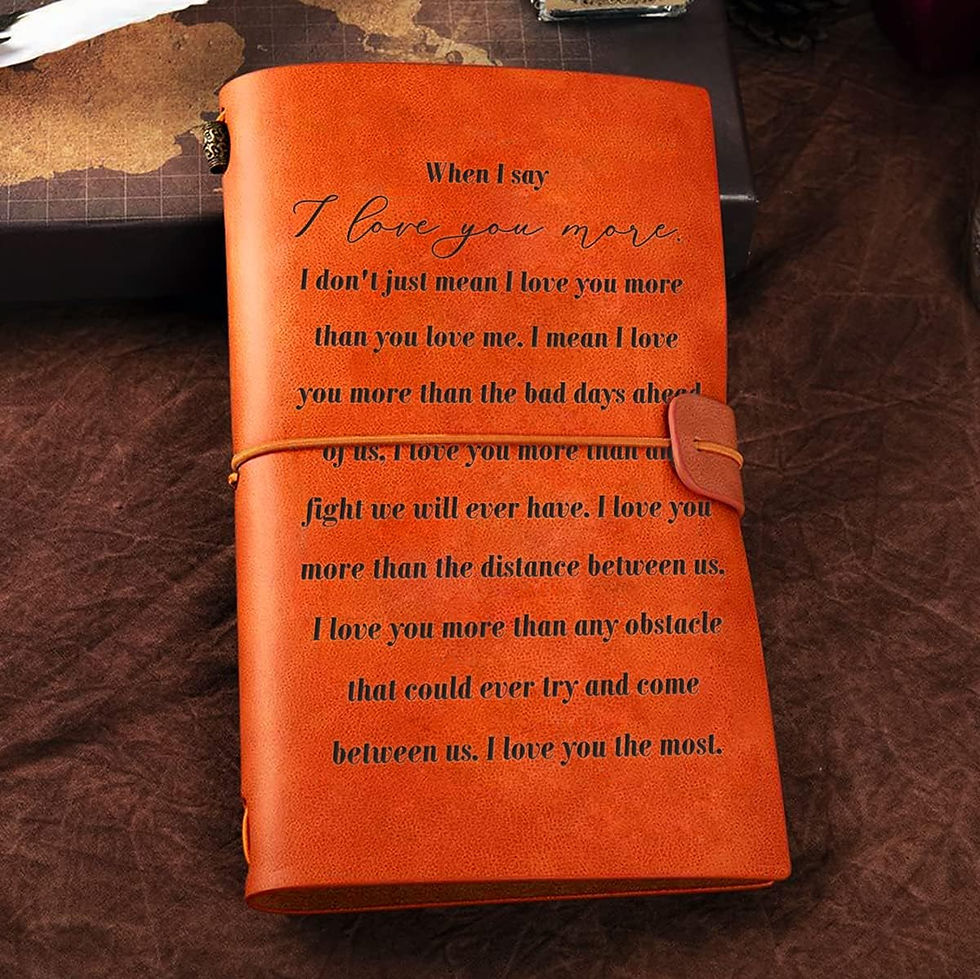 When I say
I love you more.
I don't just mean I love you more
than you love me. I mean I love
you more than the bad days ahead
of us, I love you more than
fight we will ever have. I love you
more than the distance between us.
I love you more than any obstacle
that could ever try and come
between us. I love you the most.